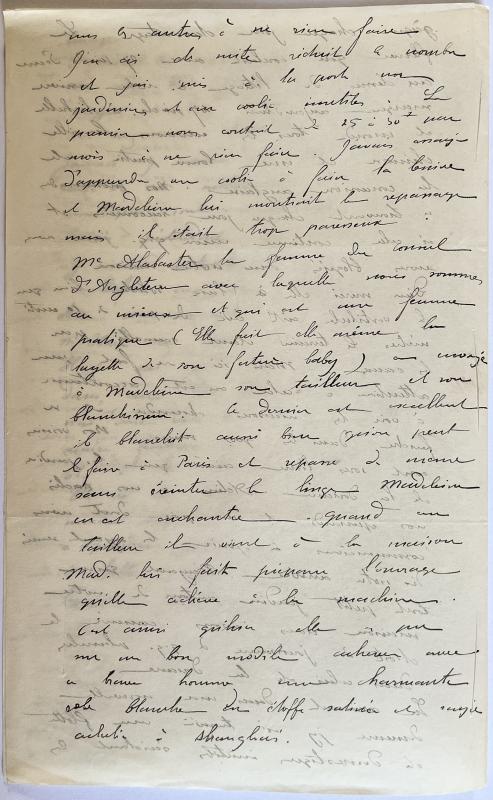 uns les autres à ne rien faire
J'en ai de suite réduit le nombre
et j'ai mis à la porte un
jardinier et un coolie inutiles. Le
premier nous coûtait de 25 à 30 par
mois à ne rien faire. J'avais essayé
d'apprendre au coolie à faire la lessive
et Madeleine lui montrait le repassage
mais il était trop paresseux.
Me Alabaster la femme du consul
d'Angleterre avec laquelle nous sommes
au mieux et qui est une femme
pratique (Elle fait elle même la
layette de son futur baby) a envoyé
à Madeleine son tailleur et son
blanchisseur. Ce dernier est excellent
il blanchit aussi bien qu'on peut
le faire à Paris et repasse de même
sans éreinter le linge. Madeleine
en est enchantée. Quand au
tailleur il vient à la maison
Mad. lui fait préparer l'ouvrage
qu'elle achève à la machine.
C'est ainsi qu'hier elle a pu
sur un bon modèle achever avec
ce brave homme une charmante
robe blanche en étoffe satinée et
acheté à Shanghaï.